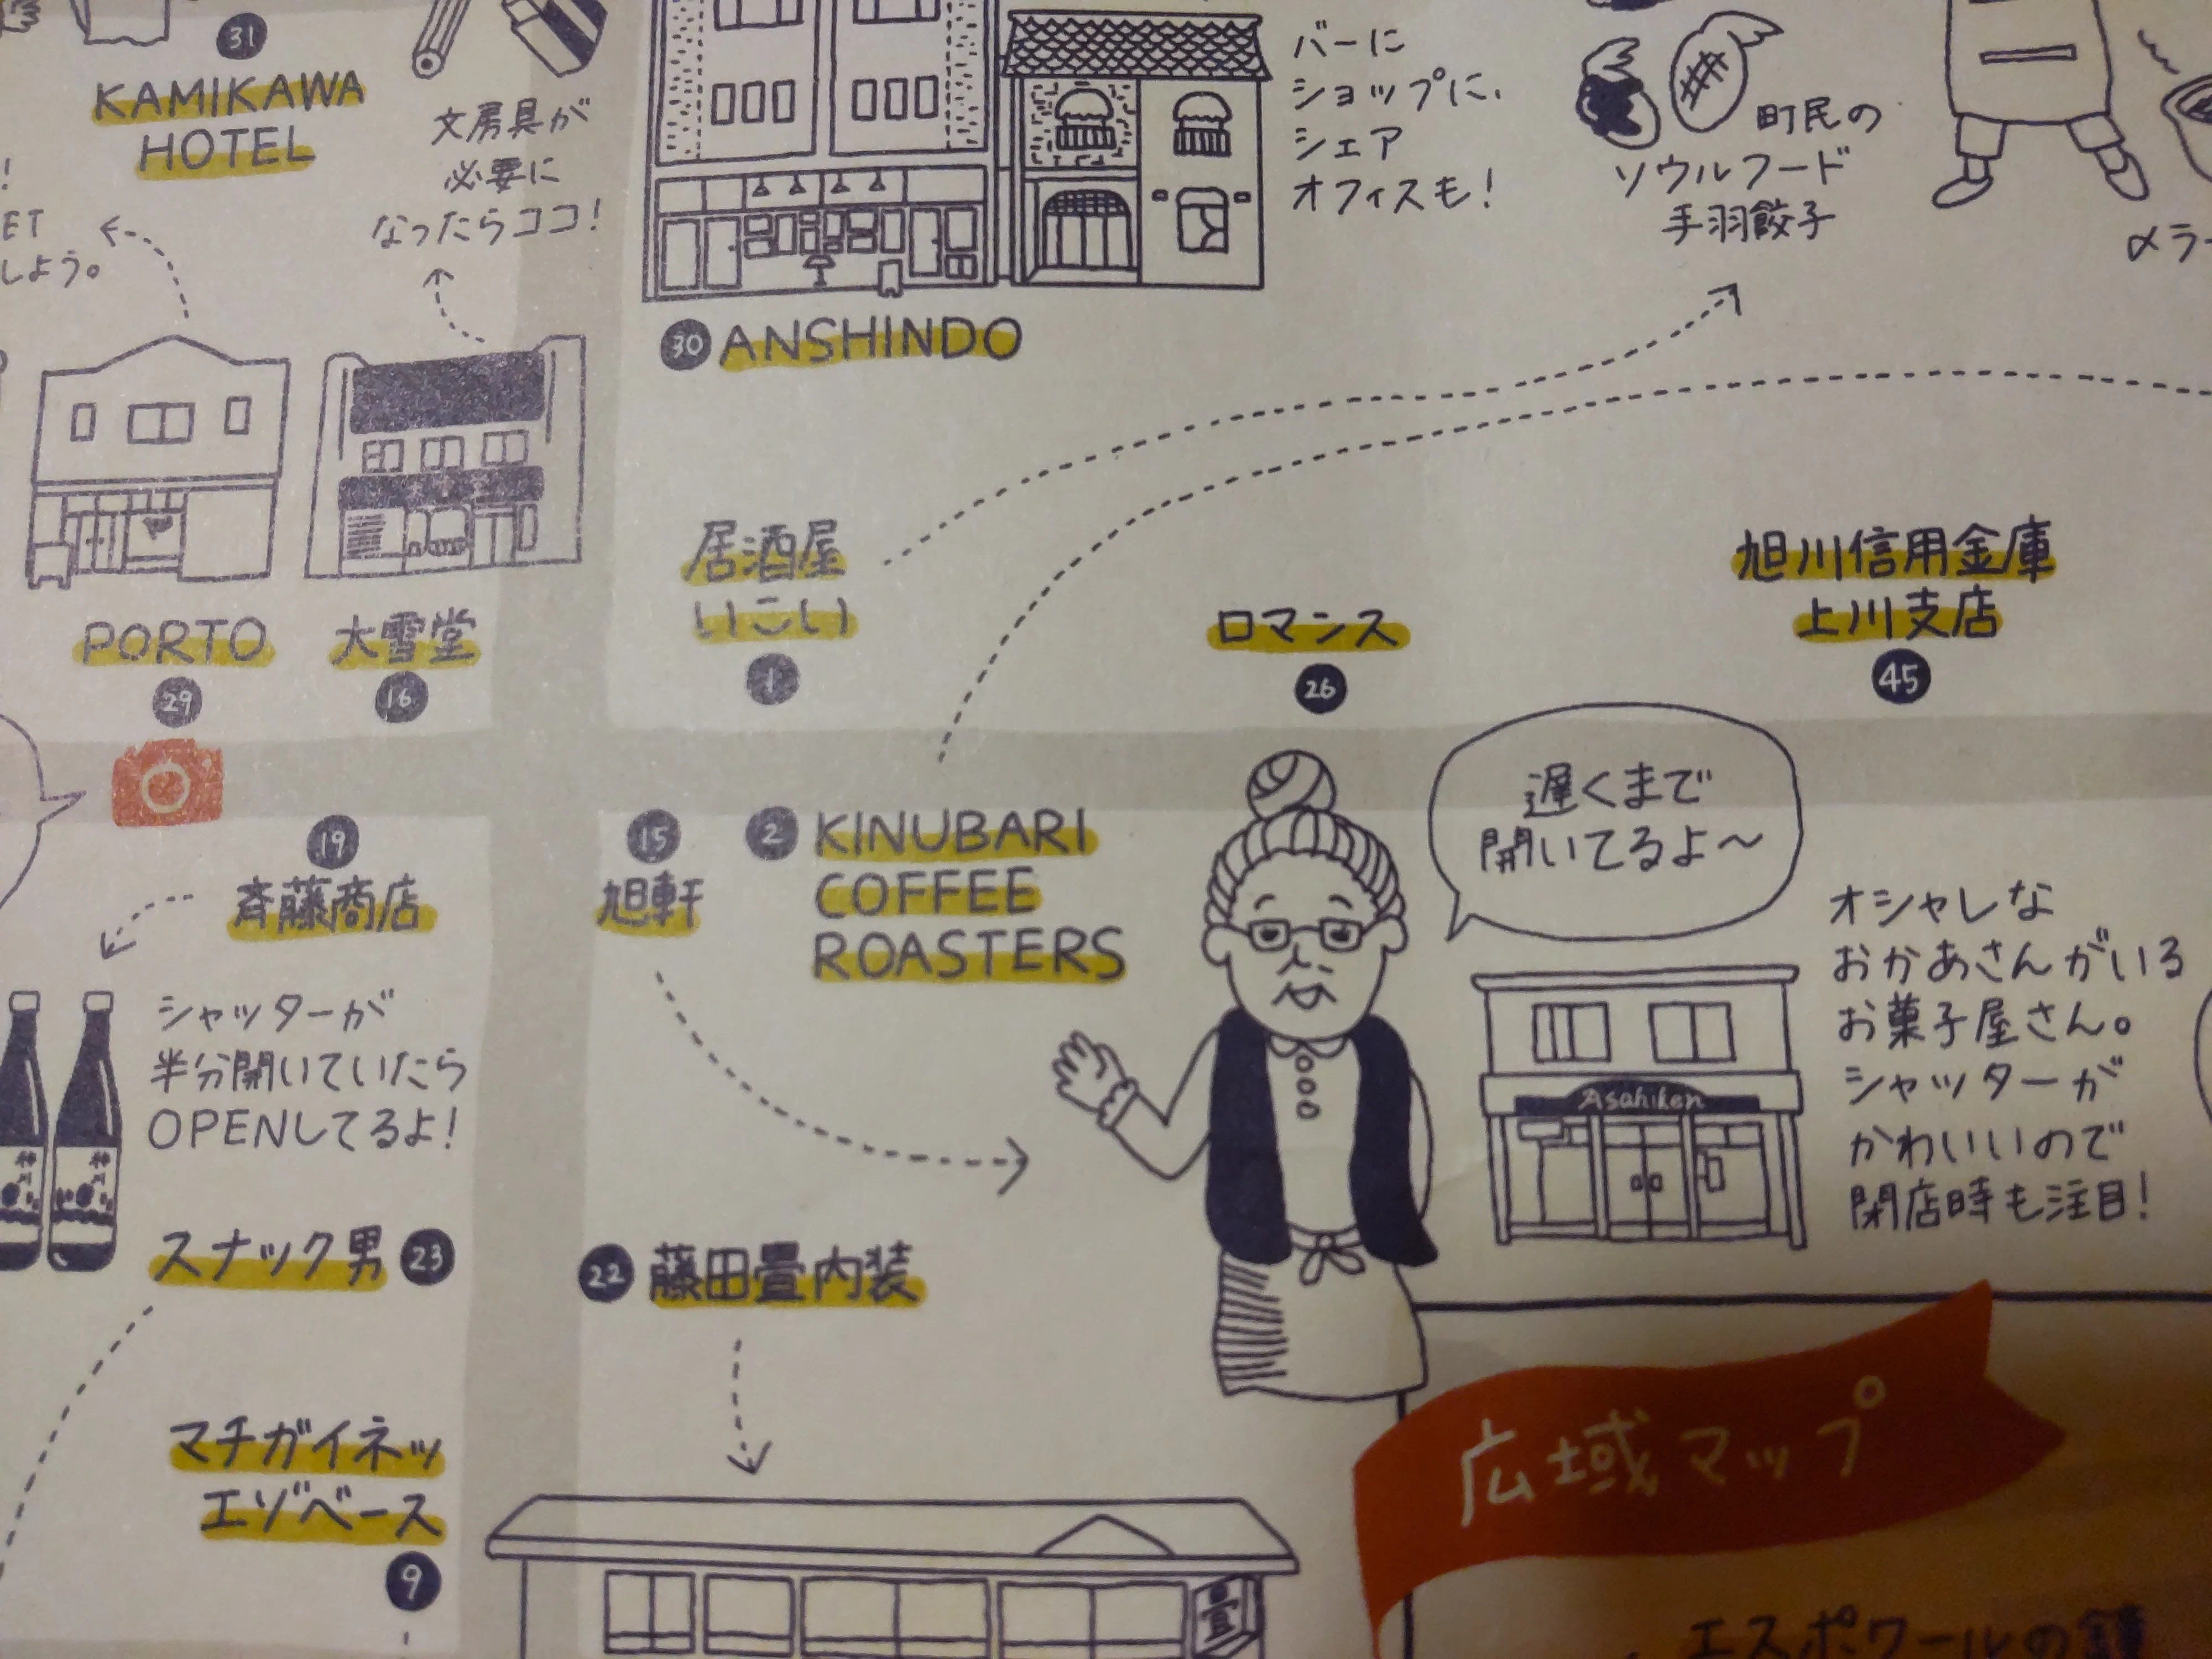 31
KAMIKAWA
HOTEL
文房具が
必要に
なったらココ!
バーに
ショップに、
シェア
オフィスも!
町民の
ソウルフード
手羽餃子
〆ラー
!
ET
しよう。
30 ANSHINDO
PORTO
29
大雪堂
16
居酒屋
いこい
1
ロマンス
26
旭川信用金庫
上川支店
45
19
斉藤商店
シャッターが
半分開いていたら
OPENしてるよ!
15
旭軒
2 KINUBARI
COFFEE
ROASTERS
遅くまで
開いてるよ〜
Asahiken
オシャレな
おかあさんがいる
お菓子屋さん。
シャッターが
かわいいので
閉店時も注目!
スナック男 23
22 藤田畳内装
マチガイネッ
エゾベース
9
畳
広域マップ
エスポワールの鐘